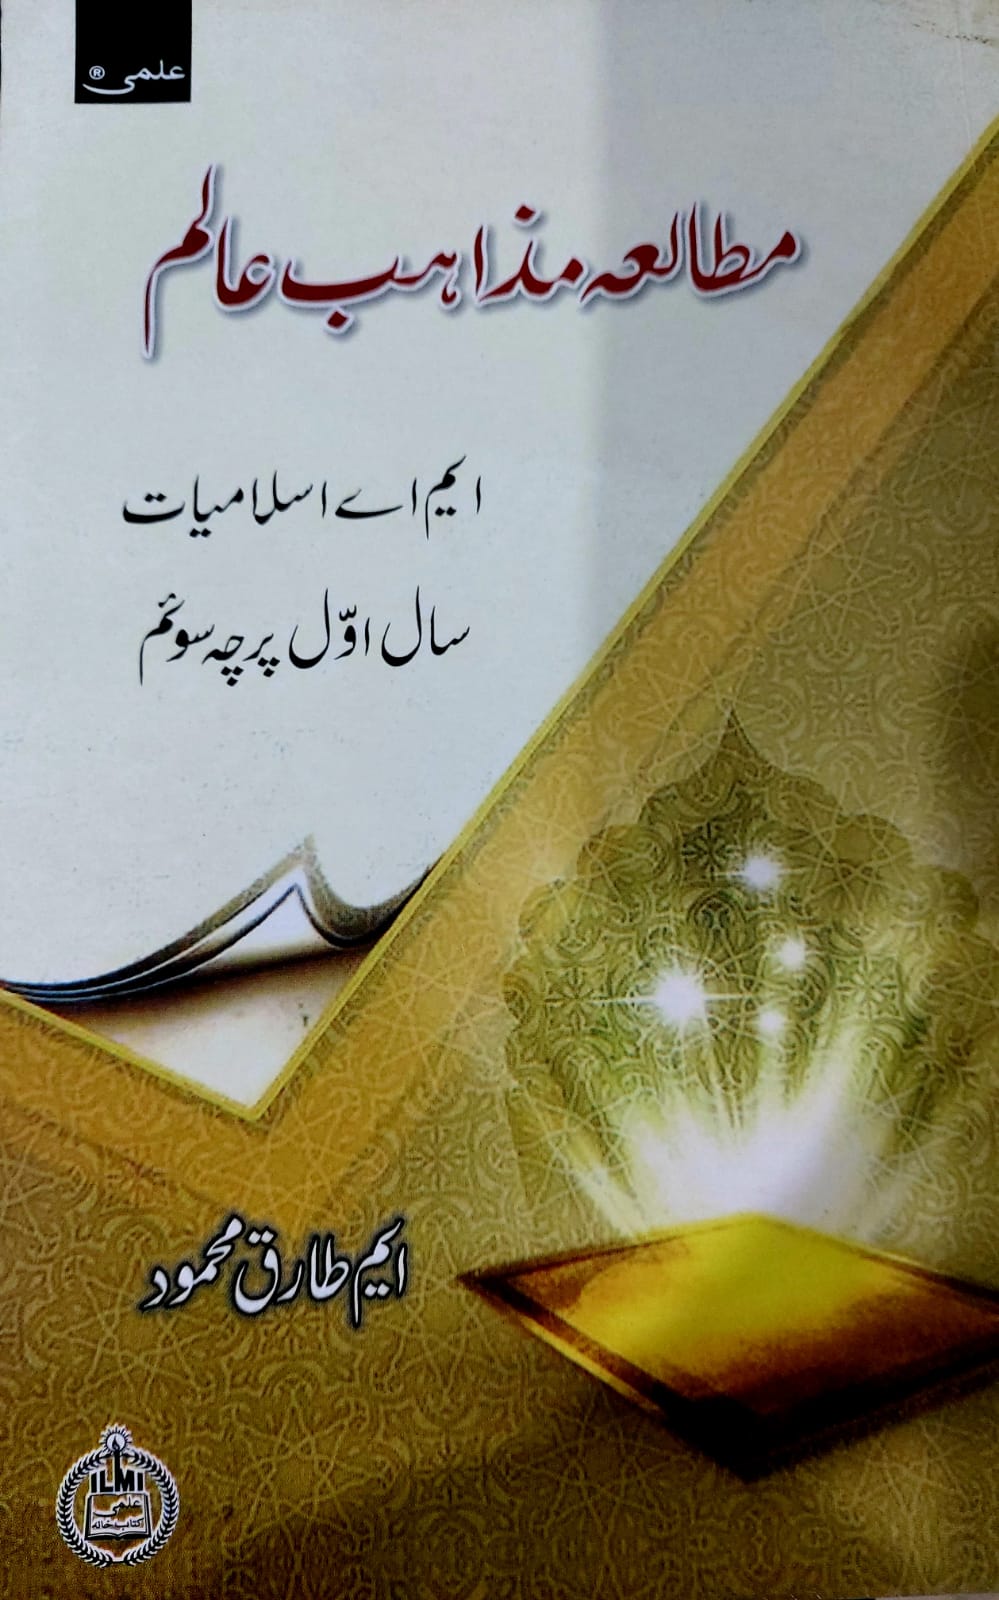 علمی ®
مطالعہ مذاہب عالم
ایم اے اسلامیات
سال اوّل پرچہ سوئم
ایم طارق محمود
ILMI
علمی
کتاب خانہ